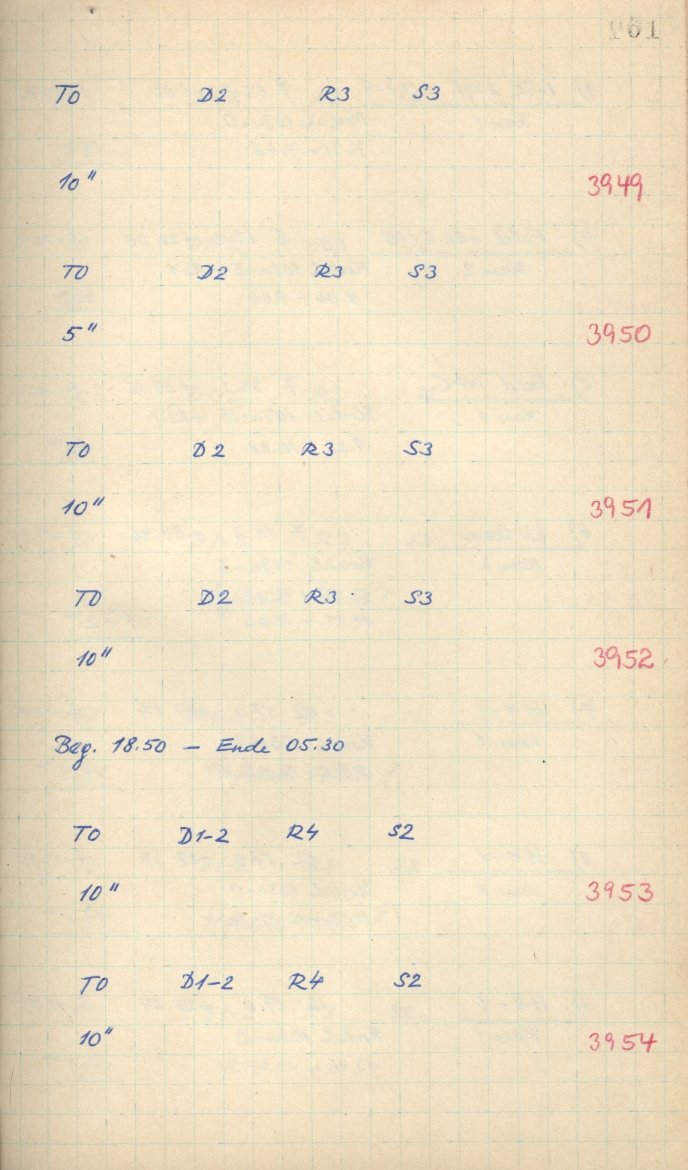 261
TO D2 R3 S3
10"
3949
TO D2 R3 S3
5"
3950
TO D2 R3 S3
10"
3951
TO D2 R3 S3
10"
3952
Beg. 18.50 — Ende 05.30
TO D1-2 R4 S2
10"
3953
TO D1-2 R4 S2
10"
3954